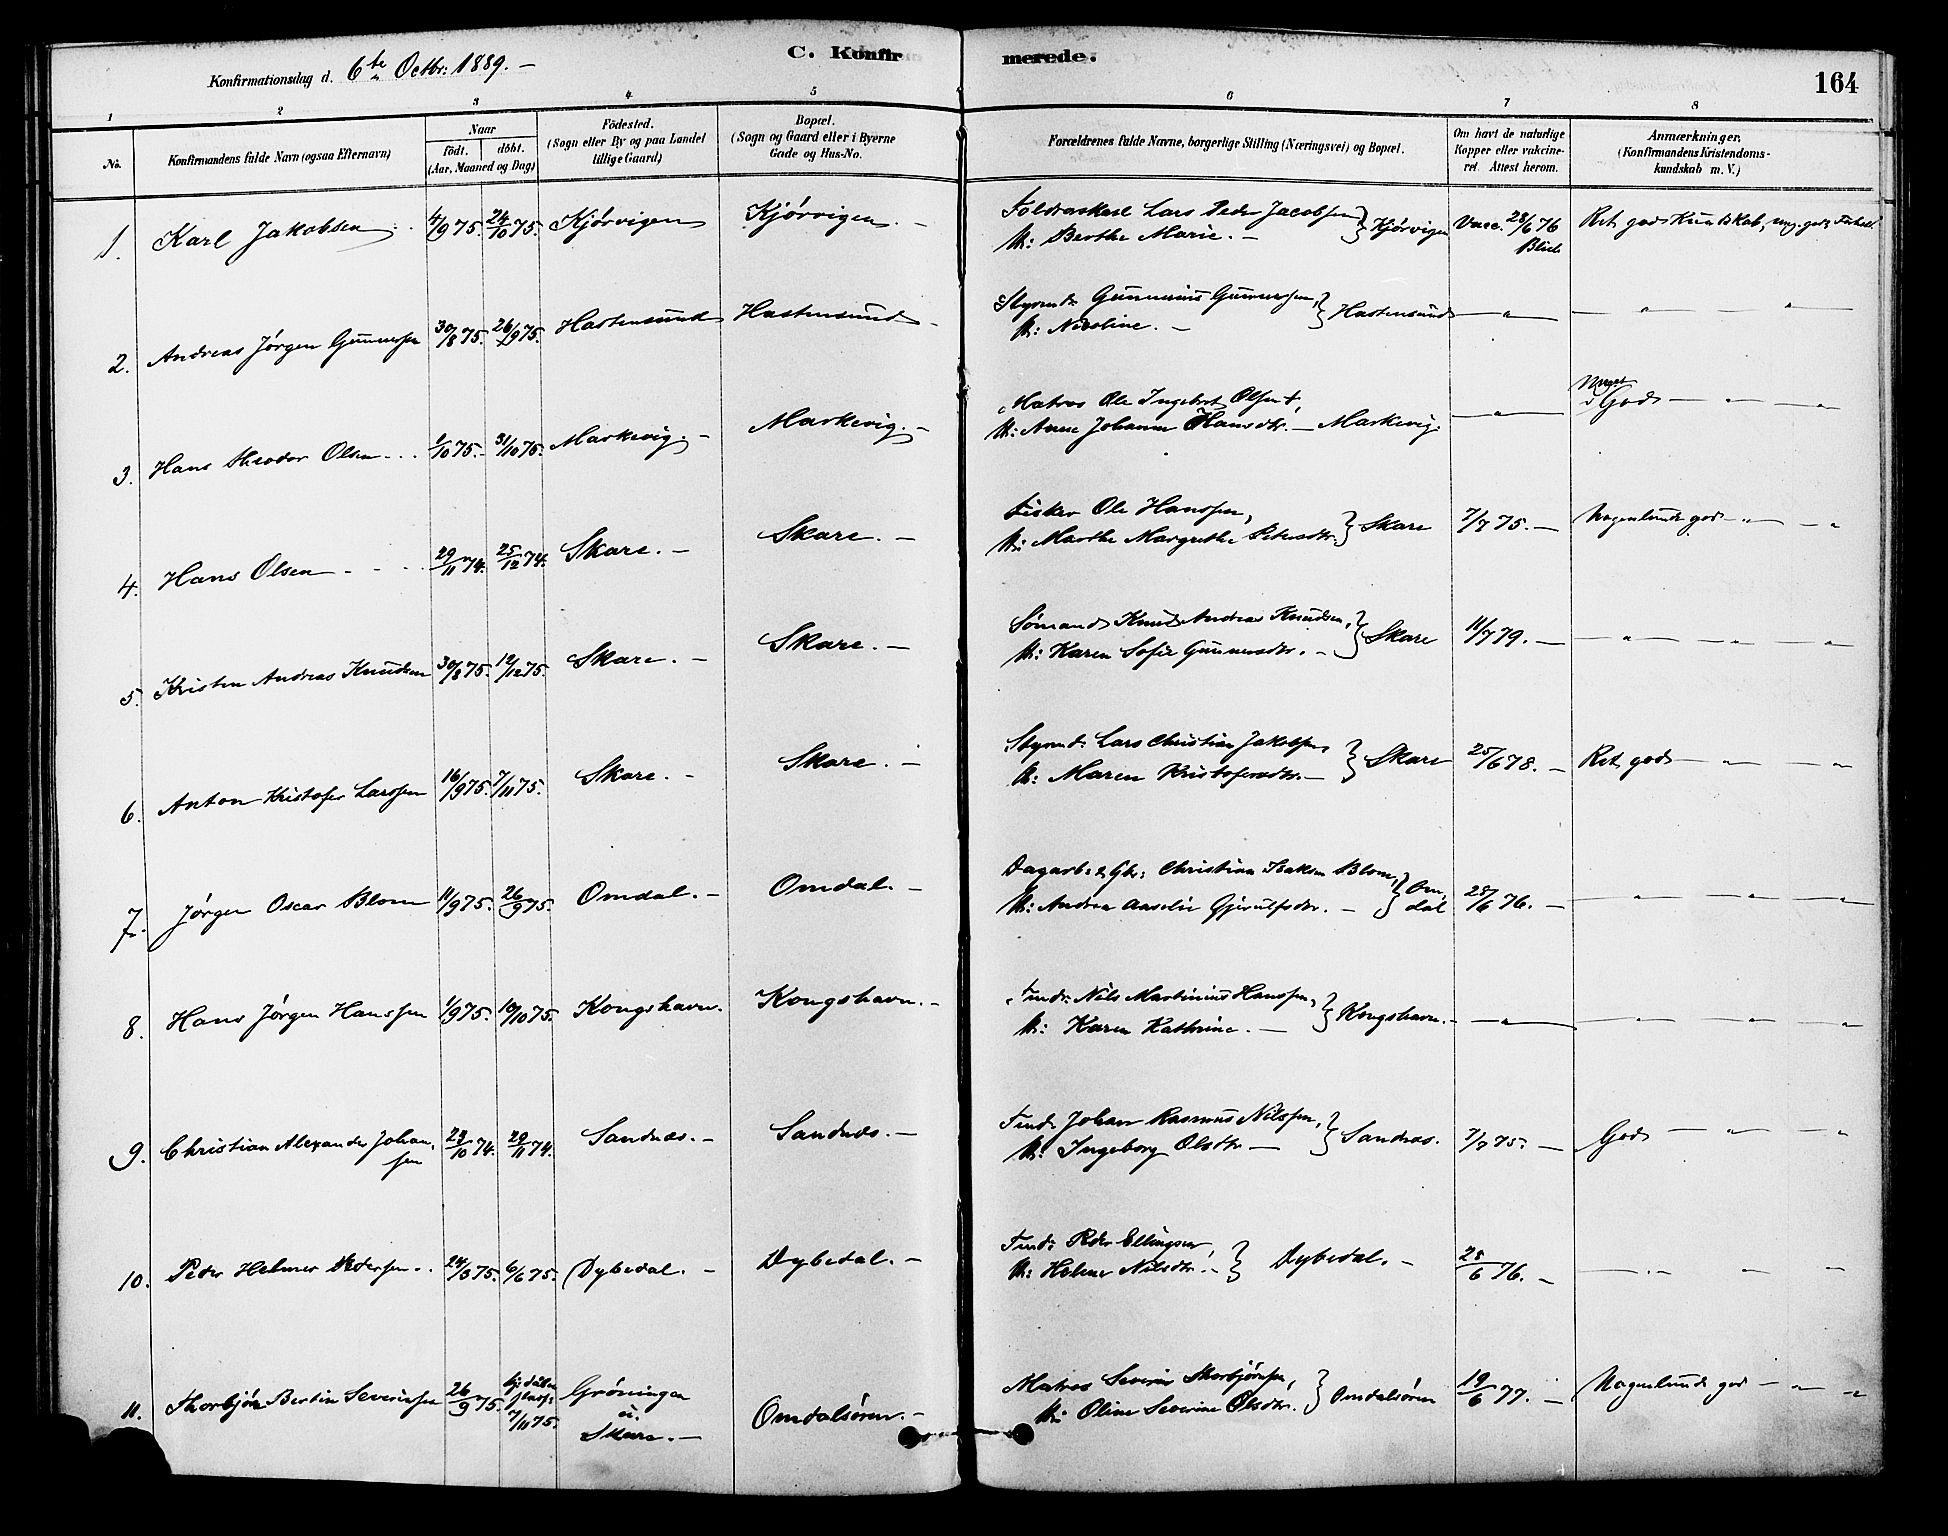 C. Konfirmerede.
164
Konfirmationsdag d. 6te Octbr: 1889. –
1 2 3 4 5 6 7 8
No.
Konfirmandens fulde Navn (ogsaa Efternavn)
Naar
födt. döbt.
(Aar, Maaned og Dag)
Födested.
(Sogn eller By og paa Landet
tillige Gaard)
Bopæl.
(Sogn og Gaard eller i Byerne
Gade og Hus-No.
Forældrenes fulde Navne, borgerlige Stilling (Næringsvei) og Bopæl.
Om havt de naturlige
Kopper eller vakcine-
ret. Attest herom.
Anmærkninger.
(Konfirmandens Kristendoms-
kundskab m. V.)
1. Karl Jakobsen 4/9 75. 24/10 75. Kjörvigen Kjörvigen. – Lars Peder Jacobsen } Kjörvigen Vacc. 28/6 76 Ret god Kundskab, mg. god
H: Berthe Marie. –
2. Andreas Jörgen Gunnersen 30/8 75. 26/9 75. Hastensund Hastensund – Styrmd: Gunnerius Gunnersen, } Hastensund – " – – " – " –
H: Nicoline. –
3. Hans Theodor Olsen 1/10 75. 31/10 75. Markevig. – Markevig. – Matros Ole Ingebret Olsen †, – " – Meget God – " – "
H: Anne Johanne Hansdtr. – Markevig.
4. Hans Olsen 29/11 74. 25/12 74. Skare. – Skare. – Fisker Ole Hanssen, } Skare 7/7 75. – Nogenlunde god – " – "
H: Marthe Margrethe Petersdtr.
5. Kristen Andreas Knudsen 30/8 75. 12/12 75. Skare. – Skare. – Sömand Knud Andreas Knudsen, } Skare 11/7 79. – – " – " – "
H: Karen Sofie Gunnersdtr. –
6. Anton Kristofer Larssen 16/9 75. 7/11 75. Skare. – Skare. – Styrmd: Lars Christian Jakobsen, } Skare 25/6 78. – Ret god – " – "
H: Maren Kristofersdtr. –
7. Jörgen Oscar Blom 11/9 75. 26/9 75. Omdal. – Omdal. – Dagarb. & Gbr: Christian Isaksen Blom, } Om- 28/6 76. – – " – " – "
H: Andrea Aaselie Gjerulfsdtr. – dal
8. Hans Jörgen Hanssen 1/9 75. 10/10 75. Kongshavn. Kongshavn. – Nils Martinius Hanssen, } Kongshavn. – – " – – " – " – "
H: Karen Kathrine. –
9. Christian Alexander Johan- 23/10 74. 29/11 74. Sandnæs. – Sandnæs. – Johan Rasmus Nilssen, } Sandnæs. 7/7 75. – God – " – "
sen H: Ingeborg Olsdtr –
10. Peder Helmer Pedersen 24/5 75. 6/6 75. Dybedal. – Dybedal. – Peder Ellingsen, } Dybedal. – 28/6 76. – – " – " – "
H: Helene Nilsdtr. –
11. Thorbjörn Bertin Severinsen 26/9 75. 7/11 75. Gröningen
u.
Skare. – Omdalsören. – Matros Severin Thorbjörnsen, } Omdalsören 19/6 77. – Nogenlunde god – " – "
H: Oline Severine Olsdtr.